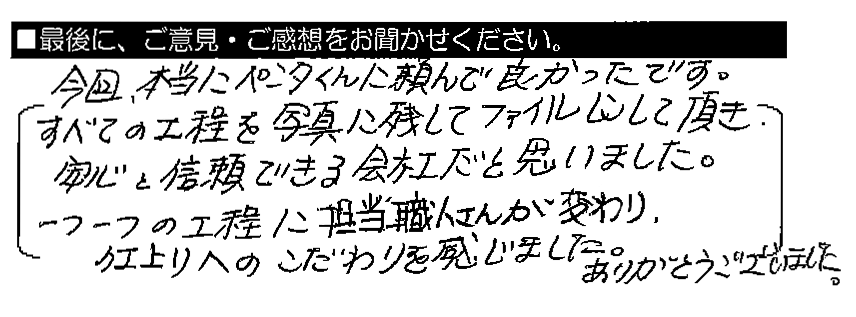 ■最後に、ご意見・ご感想をお聞かせください。
今回、本当にペンタくんに頼んで良かったです。
すべての工程を写真に残してファイルして頂き、
安心と信頼できる会社だと思いました。
一つ一つの工程に担当職人さんが変わり、
仕上りへのこだわりを感じました。
ありがとうございました。